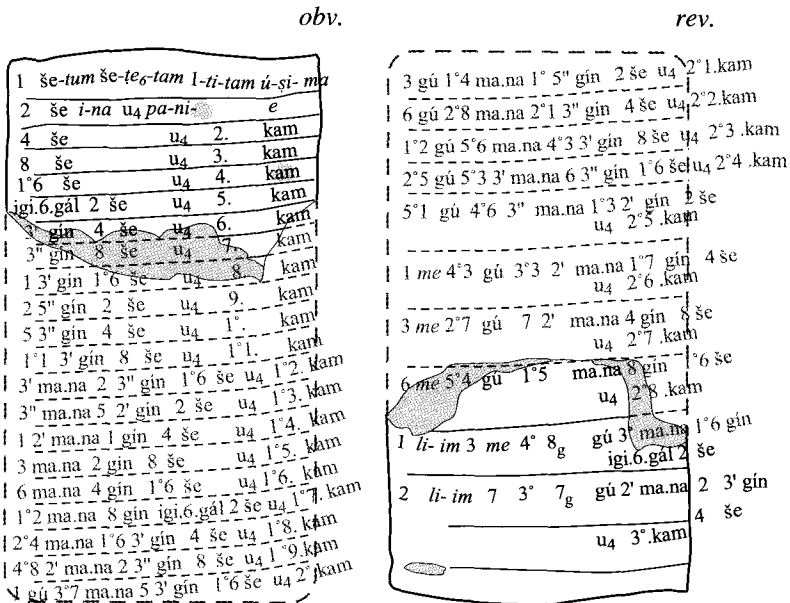 obv.
1 še-tum še-ṭe₆-tam 1-ti-tam ú-ṣi- ma
2 še i-na u₄ pa-ni- e
4 še u₄ 2. kam
8 še u₄ 3. kam
1°6 še u₄ 4. kam
igi.6.gál 2 še u₄ 5. kam
3' gín 4 še u₄ 6. kam
3" gín 8 še u₄ 7. kam
1 3' gín 1°6 še u₄ 8 kam
2 5" gín 2 še u₄ 9. kam
5 3" gín 4 še u₄ 1°. kam
1°1 3' gín 8 še u₄ 1°1. kam
3' ma.na 2 3" gín 1°6 še u₄ 1°2. kam
3" ma.na 5 2' gín 2 še u₄ 1°3. kam
1 2' ma.na 1 gín 4 še u₄ 1°4. kam
3 ma.na 2 gín 8 še u₄ 1°5. kam
6 ma.na 4 gín 1°6 še u₄ 1°6. kam
1°2 ma.na 8 gín igi.6.gál 2 še u₄ 1°7. kam
2°4 ma.na 1°6 3' gín 4 še u₄ 1°8. kam
4°8 2' ma.na 2 3" gín 8 še u₄ 1°9.kam
1 gú 3°7 ma.na 5 3' gín 1°6 še u₄ 2°.kam
rev.
3 gú 1°4 ma.na 1° 5" gín 2 še u₄ 2°1.kam
6 gú 2°8 ma.na 2°1 3" gín 4 še u₄ 2°2.kam
1°2 gú 5°6 ma.na 4°3 3' gín 8 še u₄ 2°3 .kam
2°5 gú 5°3 3' ma.na 6 3" gín 1°6 še u₄ 2°4 .kam
5°1 gú 4°6 3" ma.na 1°3 2' gín 2 še
u₄ 2°5 .kam
1 me 4°3 gú 3°3 2' ma.na 1°7 gín 4 še
u₄ 2°6 .kam
3 me 2°7 gú 7 2' ma.na 4 gín 8 še
u₄ 2°7 .kam
6 me 5°4 gú 1°5 ma.na 8 gín 1°6 še
u₄ 2°8 .kam
1 li- im 3 me 4° 8g gú 3° ma.na 1°6 gín
igi.6.gál 2 še
2 li- im 7 3° 7g gú 2' ma.na 2 3' gín
4 še
u₄ 3°.kam